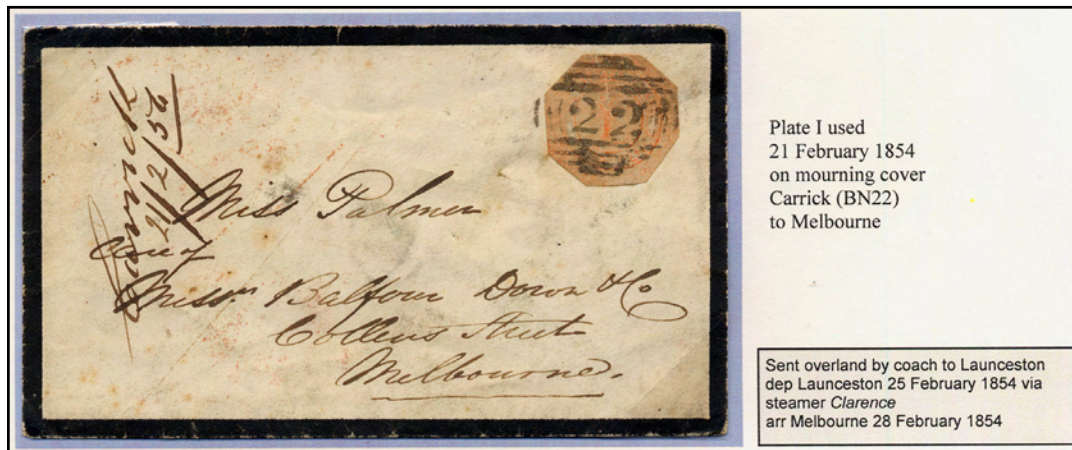 Carrick
21/2/54
22
Miss Palmer
Care of
Messrs Balfour Down & Co
Collens Street
Melbourne.
Plate I used
21 February 1854
on mourning cover
Carrick (BN22)
to Melbourne
Sent overland by coach to Launceston
dep Launceston 25 February 1854 via
steamer Clarence
arr Melbourne 28 February 1854